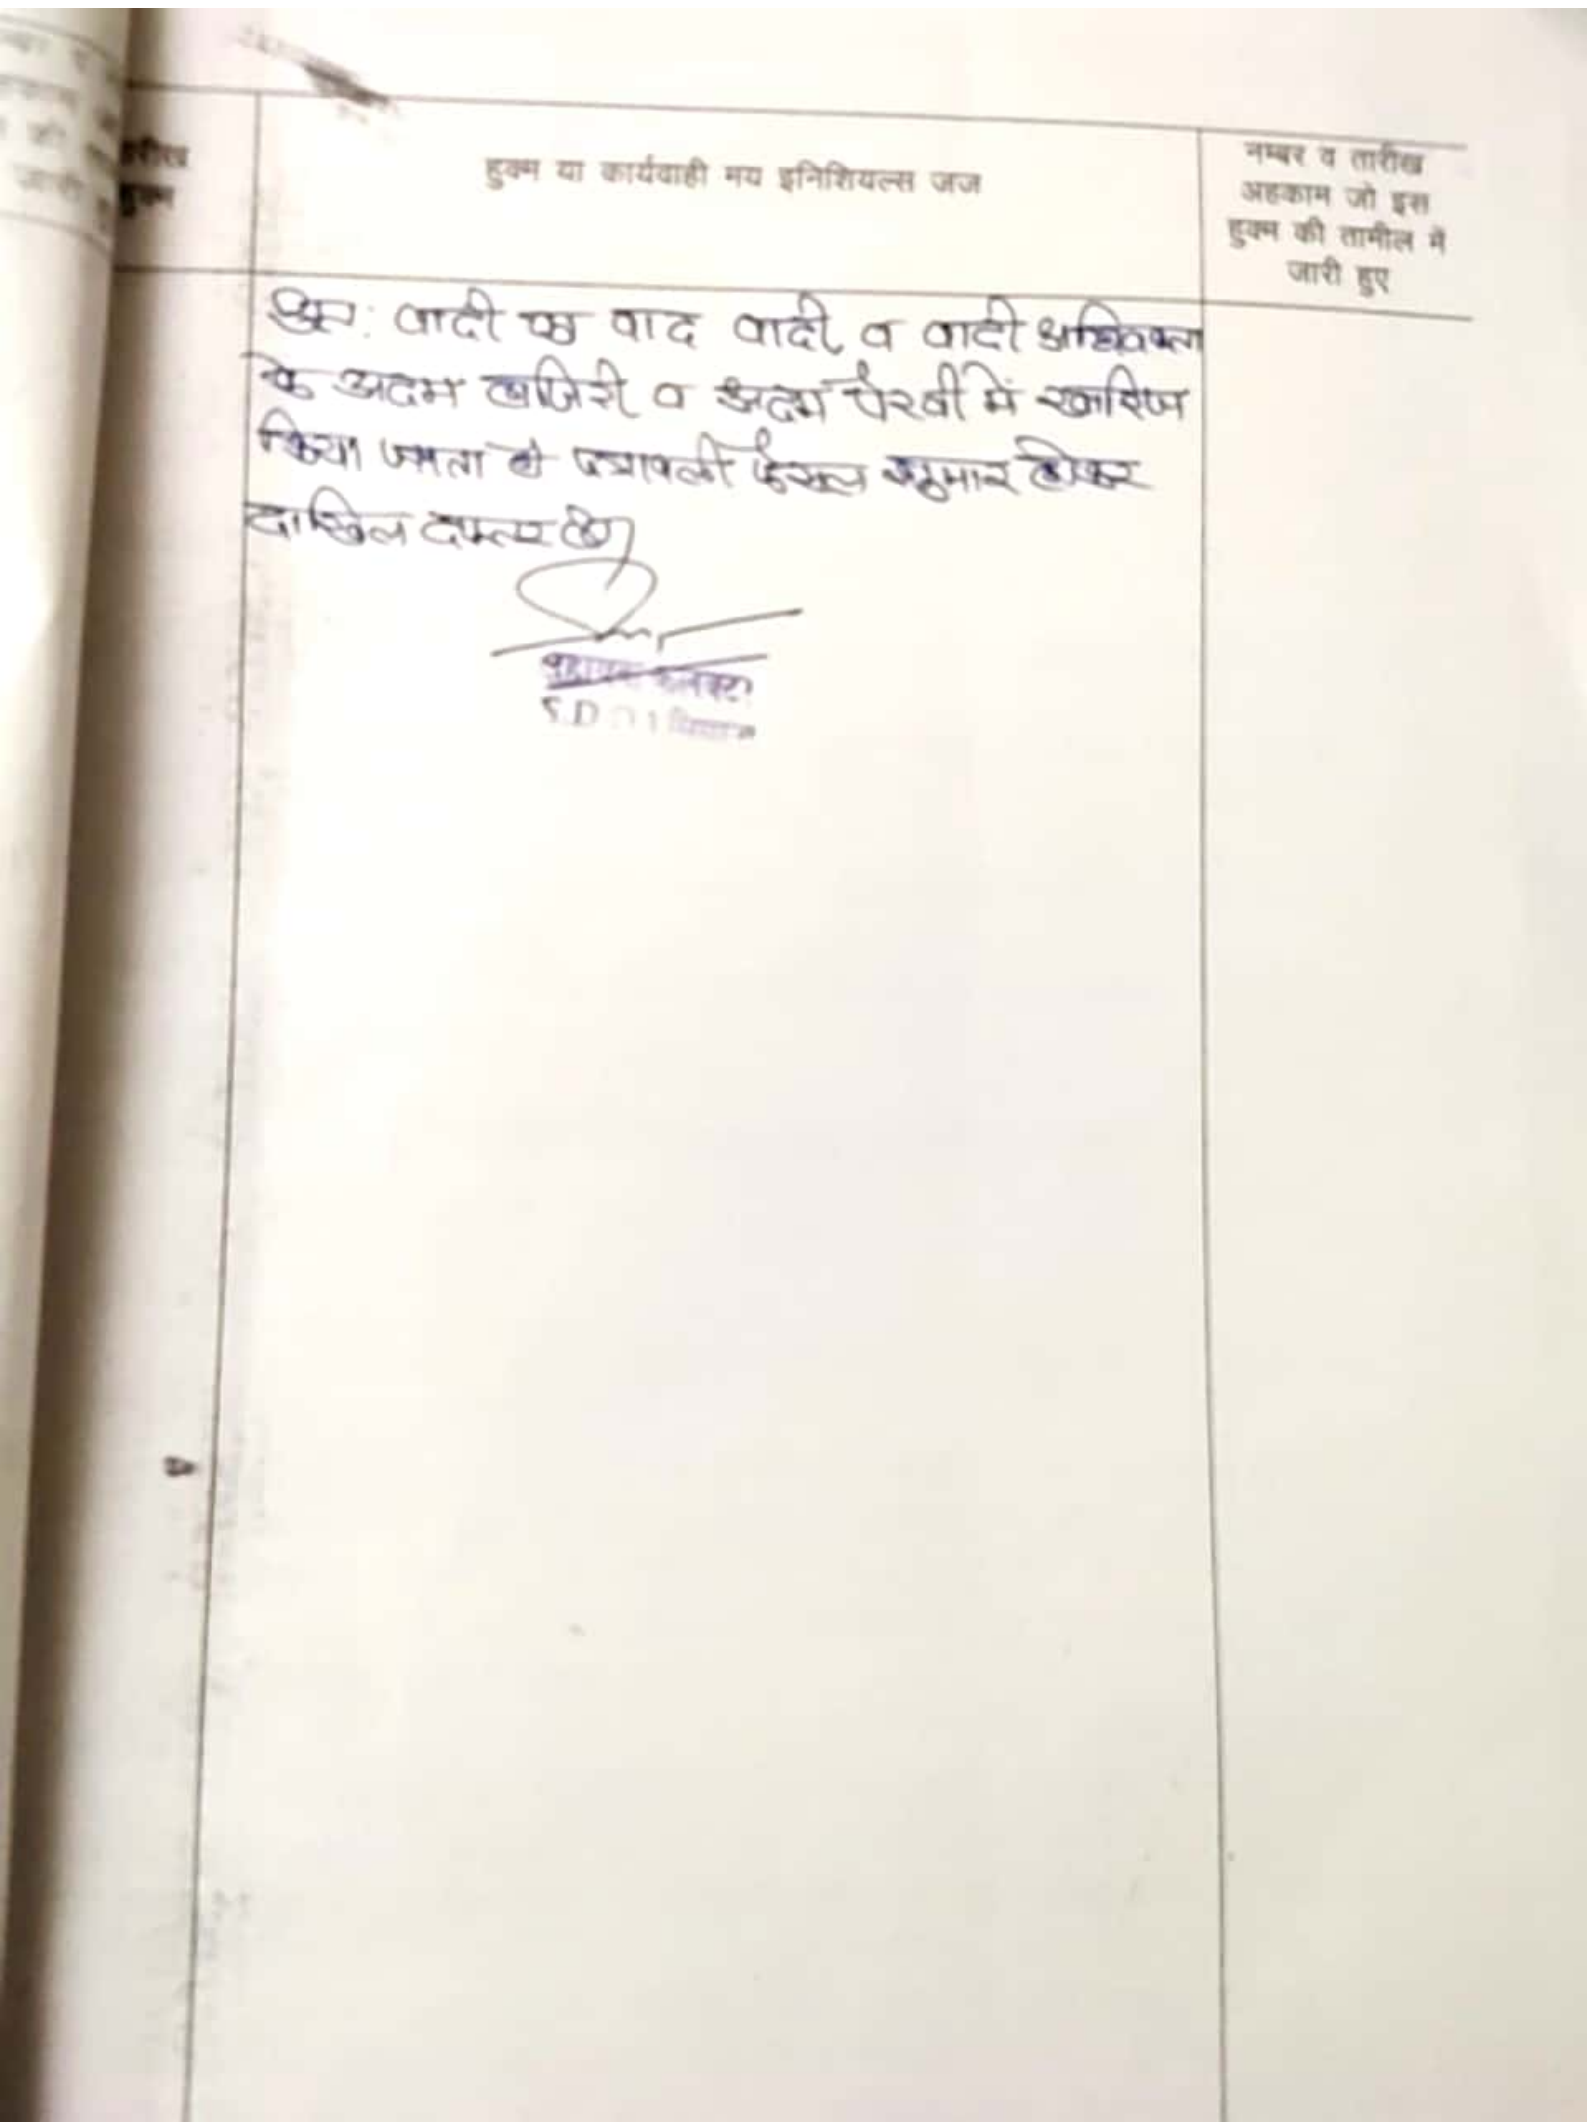 तारीख
हुक्म
हुक्म या कार्यवाही मय इनिशियल्स जज
नम्बर व तारीख
अहकाम जो इस
हुक्म की तामील में
जारी हुए
अतः वादी का वाद वादी व वादी अधिवक्ता
के अदम हाजिरी व अदम पैरवी में खारिज
किया जाता है पत्रावली फैसल शुमार होकर
दाखिल दफ्तर हो
सहायक कलक्टर
S.D.